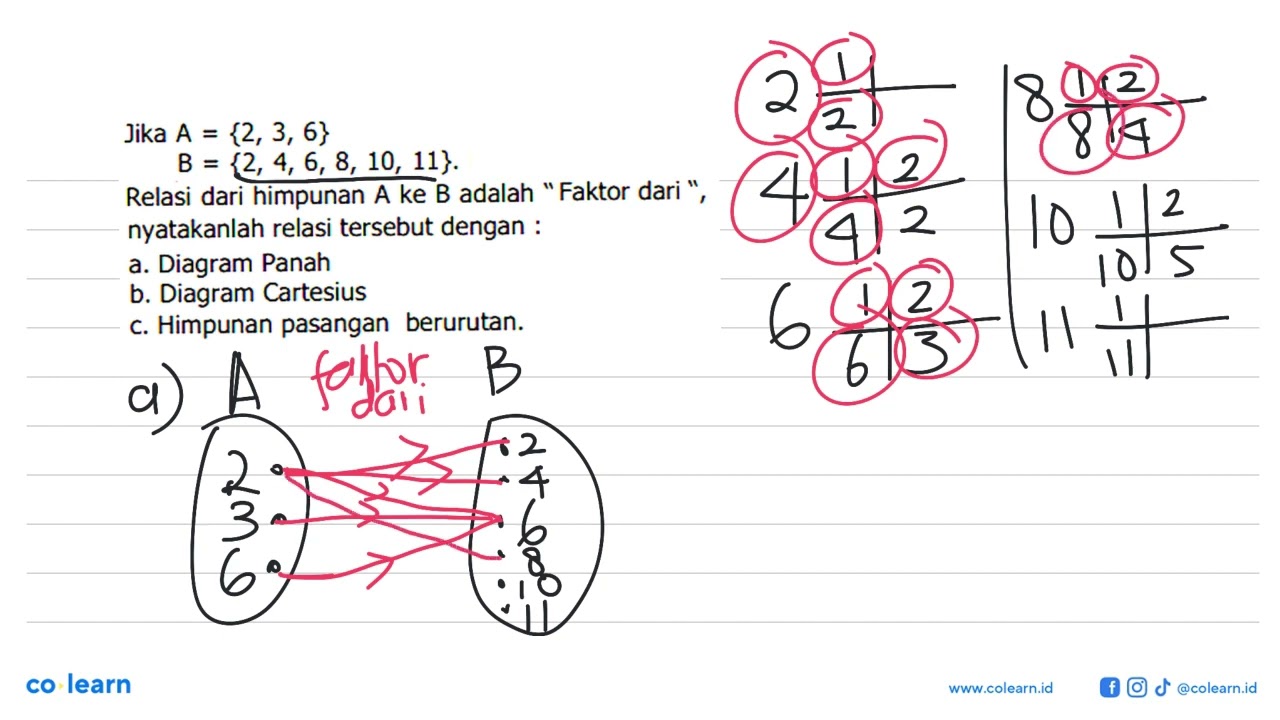 Jika A = {2, 3, 6}
B = {2, 4, 6, 8, 10, 11}.
Relasi dari himpunan A ke B adalah “ Faktor dari “,
nyatakanlah relasi tersebut dengan :
a. Diagram Panah
b. Diagram Cartesius
c. Himpunan pasangan berurutan.
a) A faktor dari B
2
3
6
2
4
6
8
10
11
2 1
2
4 1 2
4 2
6 1 2
6 3
8 1 2
8 4
10 1 2
10 5
11 1
11
co learn
www.colearn.id
@colearn.id